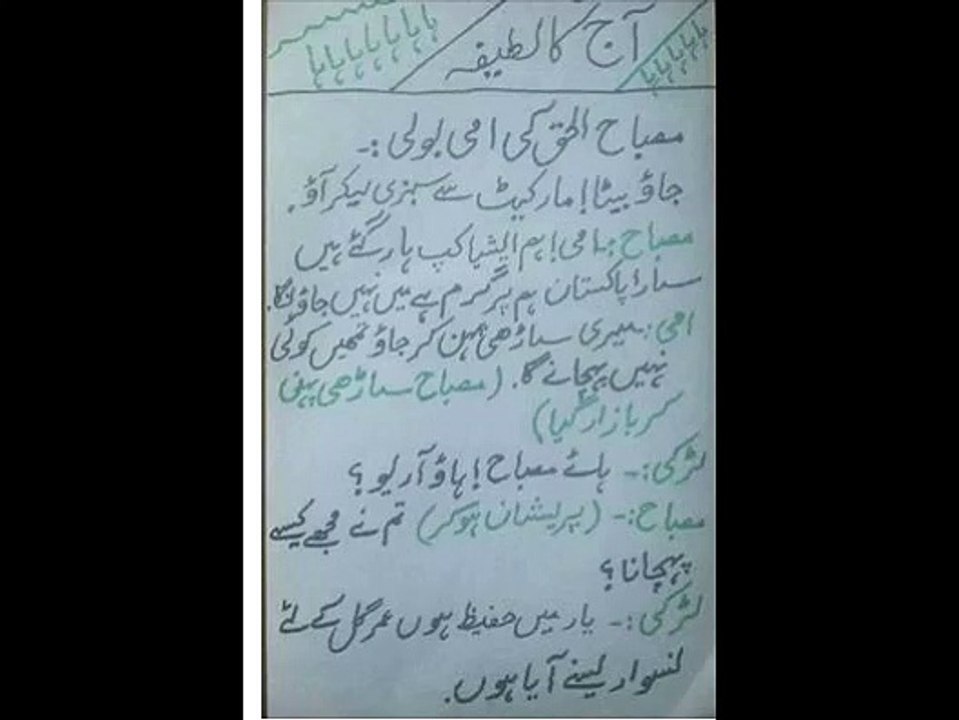 ہاہاہاہاہاہا آج کا لطیفہ ہاہاہاہاہا
مصباح الحق کی امی بولی :-
جاؤ بیٹا! مارکیٹ سے سبزی لیکر آؤ.
مصباح :- امی! ہم ایشیا کپ ہار گئے ہیں
سارا پاکستان ہم پر گرم ہے میں نہیں جاؤنگا.
امی :- میری ساڑھی پہن کر جاؤ تمہیں کوئی
نہیں پہچانے گا. (مصباح ساڑھی پہنی
کر بازار گیا)
لڑکی :- ہائے مصباح! ہاؤ آر یو ؟
مصباح :- (پریشان ہوکر) تم نے مجھے کیسے
پہچانا ؟
لڑکی :- یار میں حفیظ ہوں عمر گل کے لئے
نسوار لینے آیا ہوں.